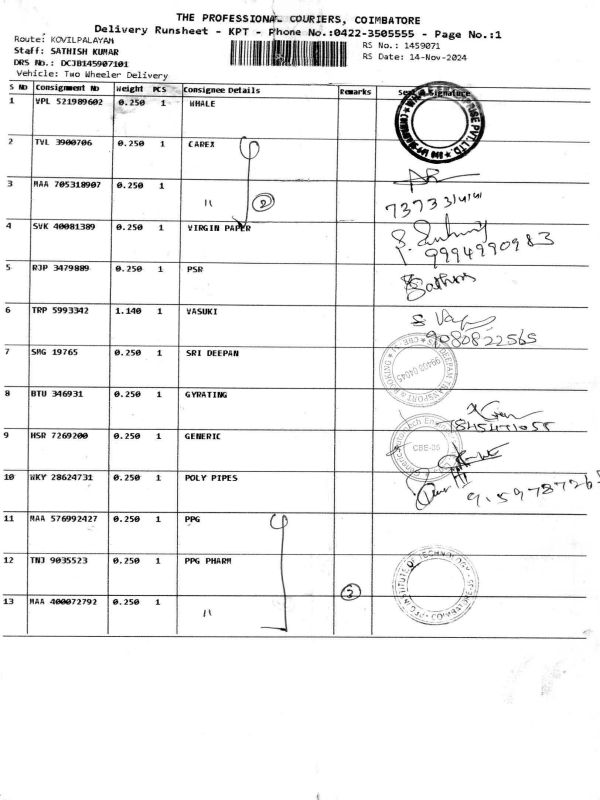 THE PROFESSIONAL COURIERS, COIMBATORE
Delivery Runsheet - KPT - Phone No.:0422-3505555 - Page No.:1
Route: KOVILPALAYAM
RS No.: 1459071
Staff: SATHISH KUMAR
RS Date: 14-Nov-2024
DRS No.: DCJB145907101
Vehicle: Two Wheeler Delivery
S NO Consignment No Weight PCS Consignee Details Remarks Signature
1 VPL 521989602 0.250 1 WHALE
2 TVL 3900706 0.250 1 CAREX
3 MAA 705318907 0.250 1 " 2
4 SVK 40081389 0.250 1 VIRGIN PAPER 9994990983
5 RJP 3479889 0.250 1 PSR
6 TRP 5993342 1.140 1 VASUKI 9080822565
7 SMG 19765 0.250 1 SRI DEEPAN
8 BTU 346931 0.250 1 GYRATING
9 HSR 7269200 0.250 1 GENERIC CBE-35
10 WKY 28624731 0.250 1 POLY PIPES
11 MAA 576992427 0.250 1 PPG
12 TNJ 9035523 0.250 1 PPG PHARM
13 MAA 400072792 0.250 1 " 3
PPG INSTITUTE OF TECHNOLOGY